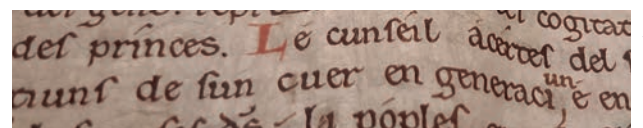 cogitat
deſ princes. Le cunſeil ácerteſ del
ciunſ de ſun cuer en generaciun, e en
la pópleſ